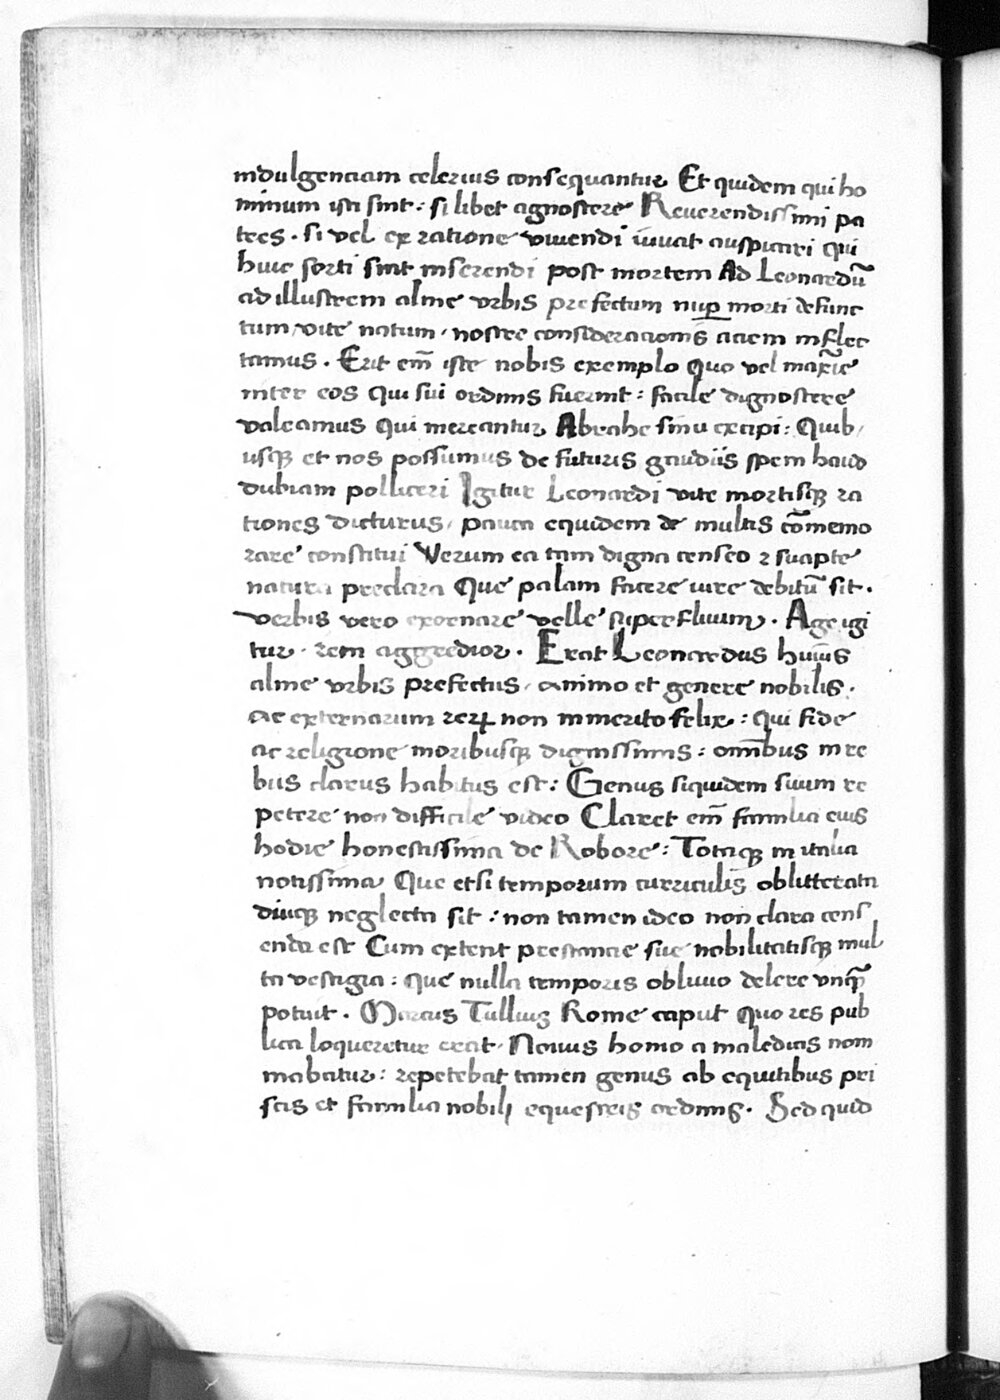 indulgenciam celerius consequantur Et quidem qui ho
minum isti sint : si libet agnoscere Reuerendissimi pa
tres . si vel ex ratione viuendi iuuat auspicari qui
huic sorti sint inserendi post mortem Ad Leonardū
ad illustrem alme vrbis prefectum nup̱ morti defunc
tum, vite natum, nostre consideracionis aciem inflec
tamus . Erit em̄ iste nobis exemplo quo vel maxīe
inter eos qui sui ordinis fuerint : facile dignoscere
valeamus qui mereantur Abrahe sinu excipi : Quib,
usqꝫ et nos possumus de futuris gaudiis spem haud
dubiam polliceri Igitur Leonardi vite mortisqꝫ ra
tiones dicturus, pauca equidem de multis cōmemo
rare constitui Verum ea tam digna censeo ⁊ suapte
natura preclara Que palam facere iure debitū sit .
verbis vero exornare velle superfluum . Age igi
tur . rem aggredior . Erat Leonardus huius
alme vrbis prefectus, animo et genere nobilis .
ac externarum rerꝝ non inmerito felix : qui fide
ac religione moribusqꝫ dignissimis : omībus in re
bus clarus habitus est : Genus siquidem suum re
petere non difficile video Claret em̄ familia eius
hodie honestissima de Robore : Totaqꝫ in italia
notissima Que etsi temporum curriculis oblitterata
diuqꝫ neglecta sit : non tamen ideo non clara cens
enda est Cum extent prestancie sue nobilitatisqꝫ mul
ta vestigia : que nulla temporis obliuio delere vnqꝫ̄
potuit . Marcus Tullius Rome caput quo res pub
lica loqueretur erat, Nouus homo a maledicis nom
inabatur : repetebat tamen genus ab equitibus pri
scis et familia nobili equestris ordinis . Sed quid